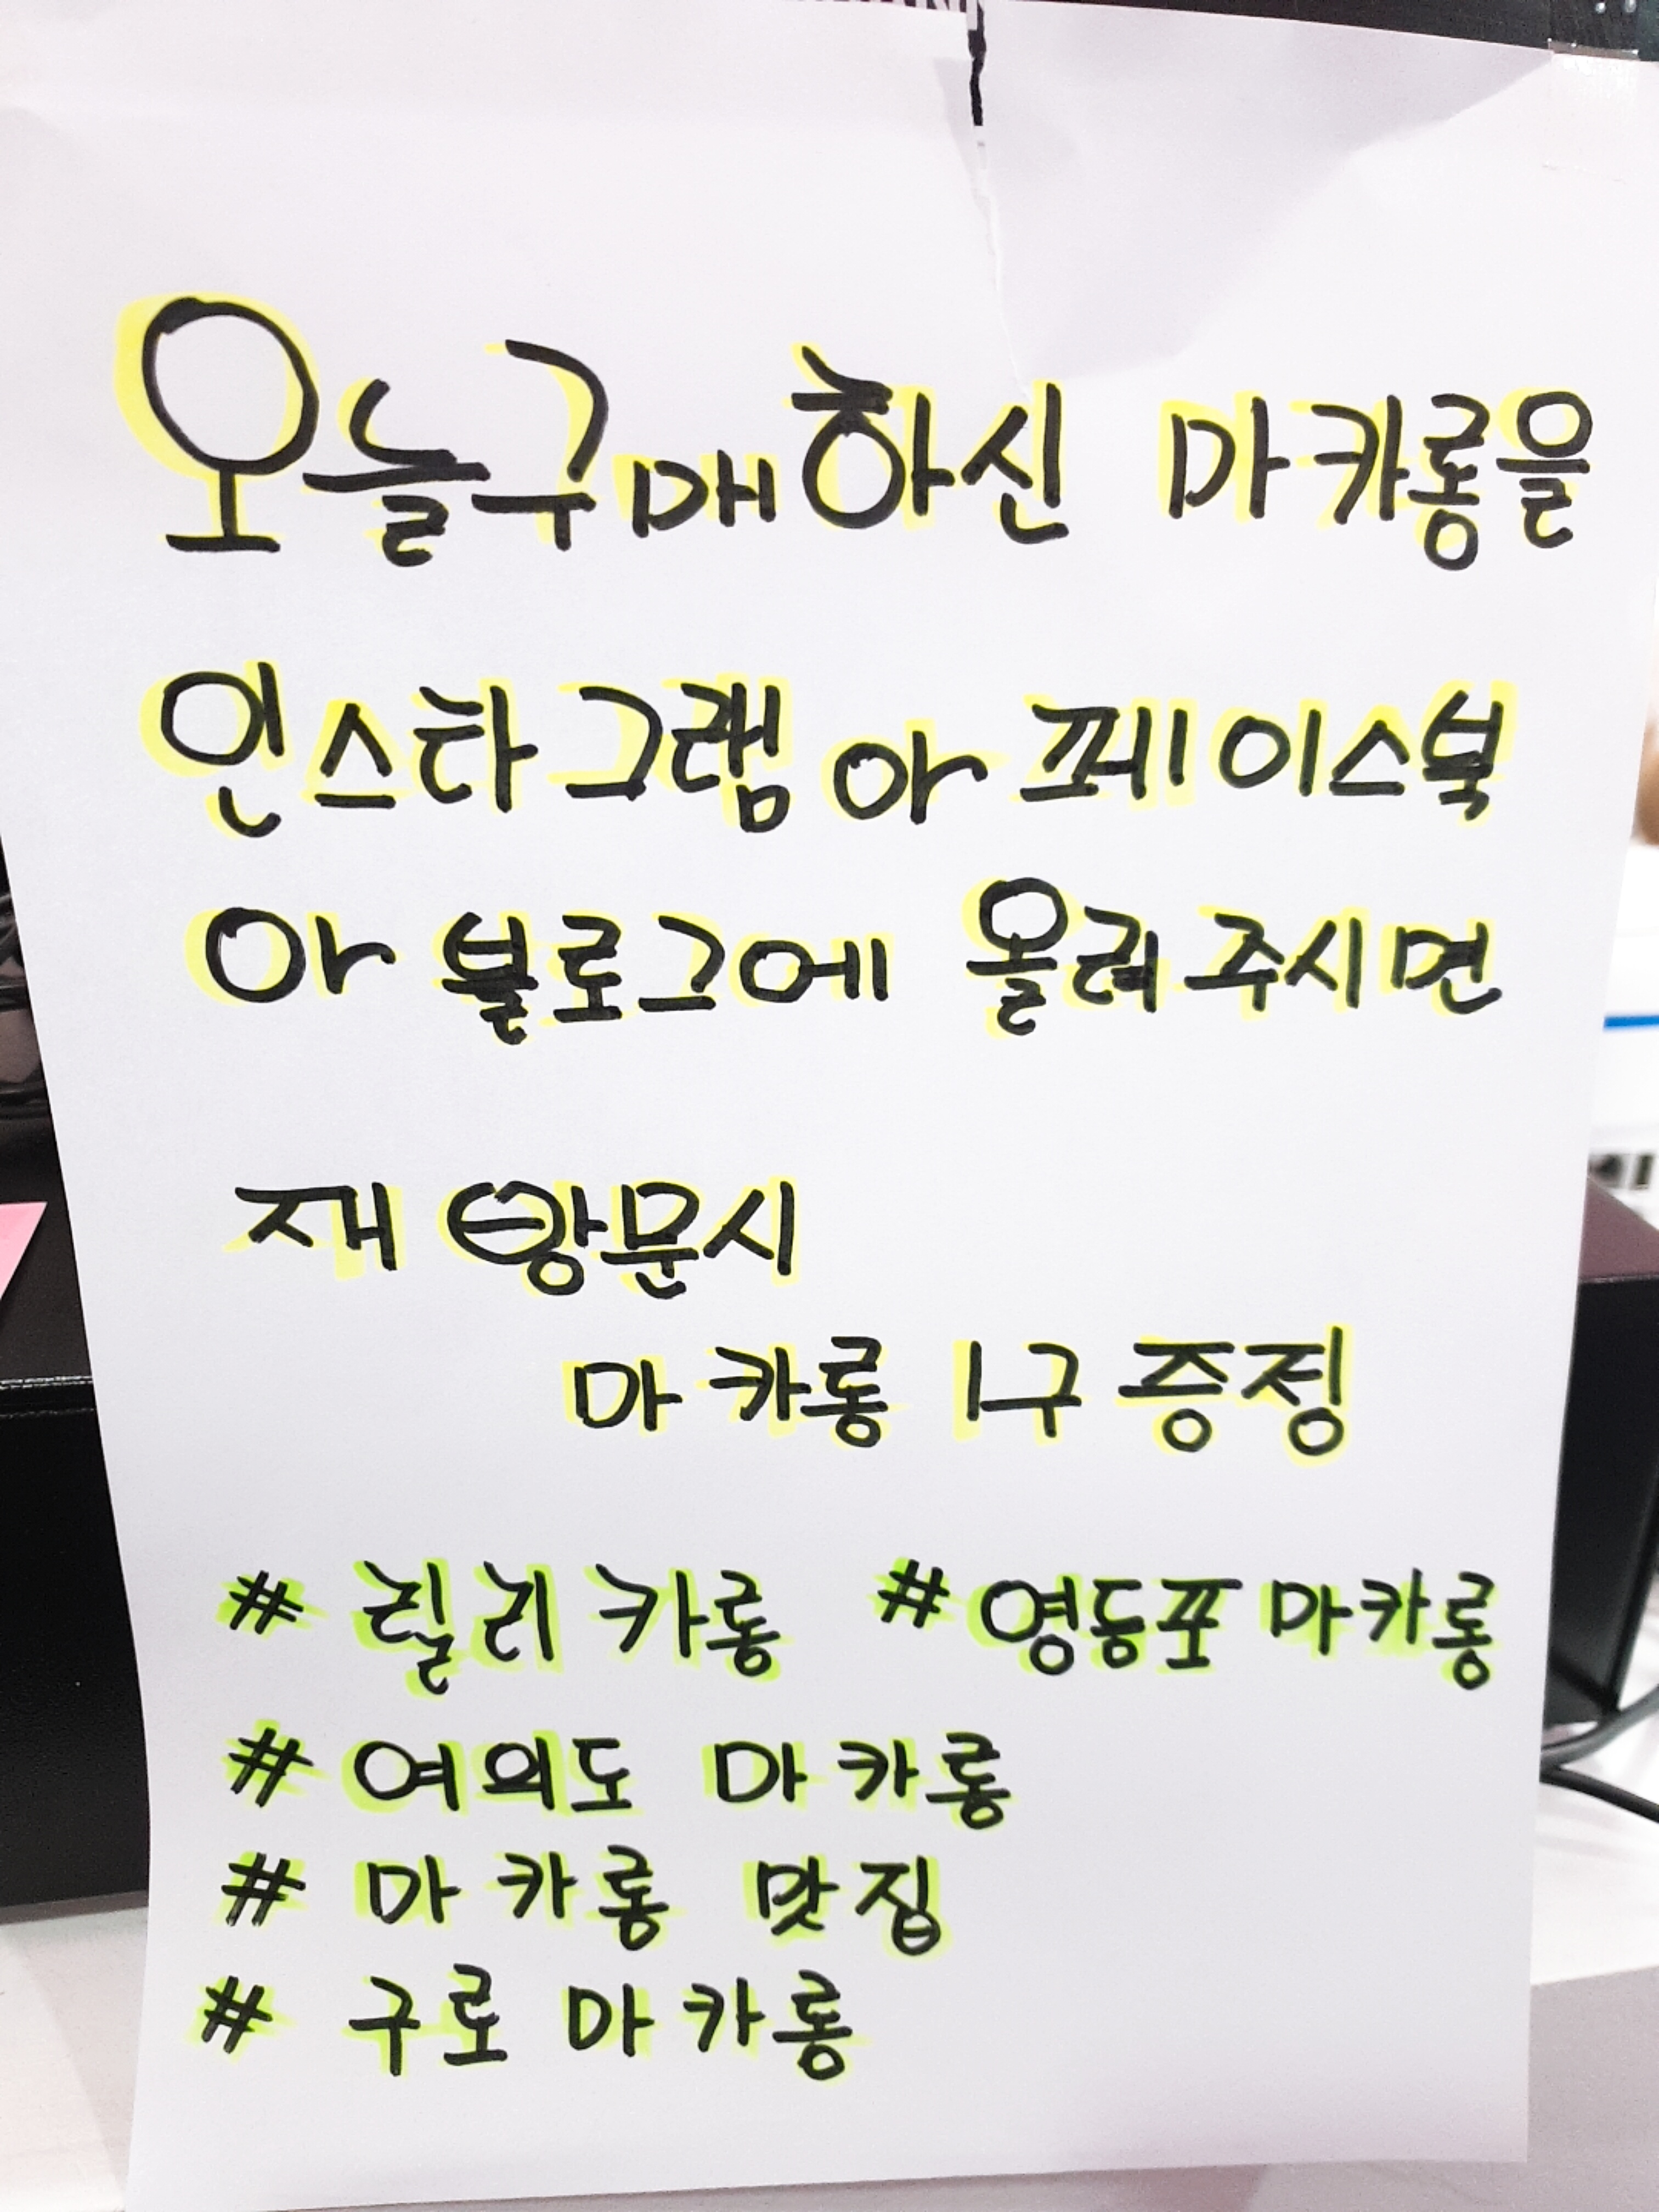 오늘구매하신 마카롱을
인스타그램 아 페이스북
아 블로그에 올려주시면
재 방문시
마카롱 1구 증정
# 릴리카롱 # 영등포마카롱
# 여의도 마카롱
# 마카롱 맛집
# 구로마카롱